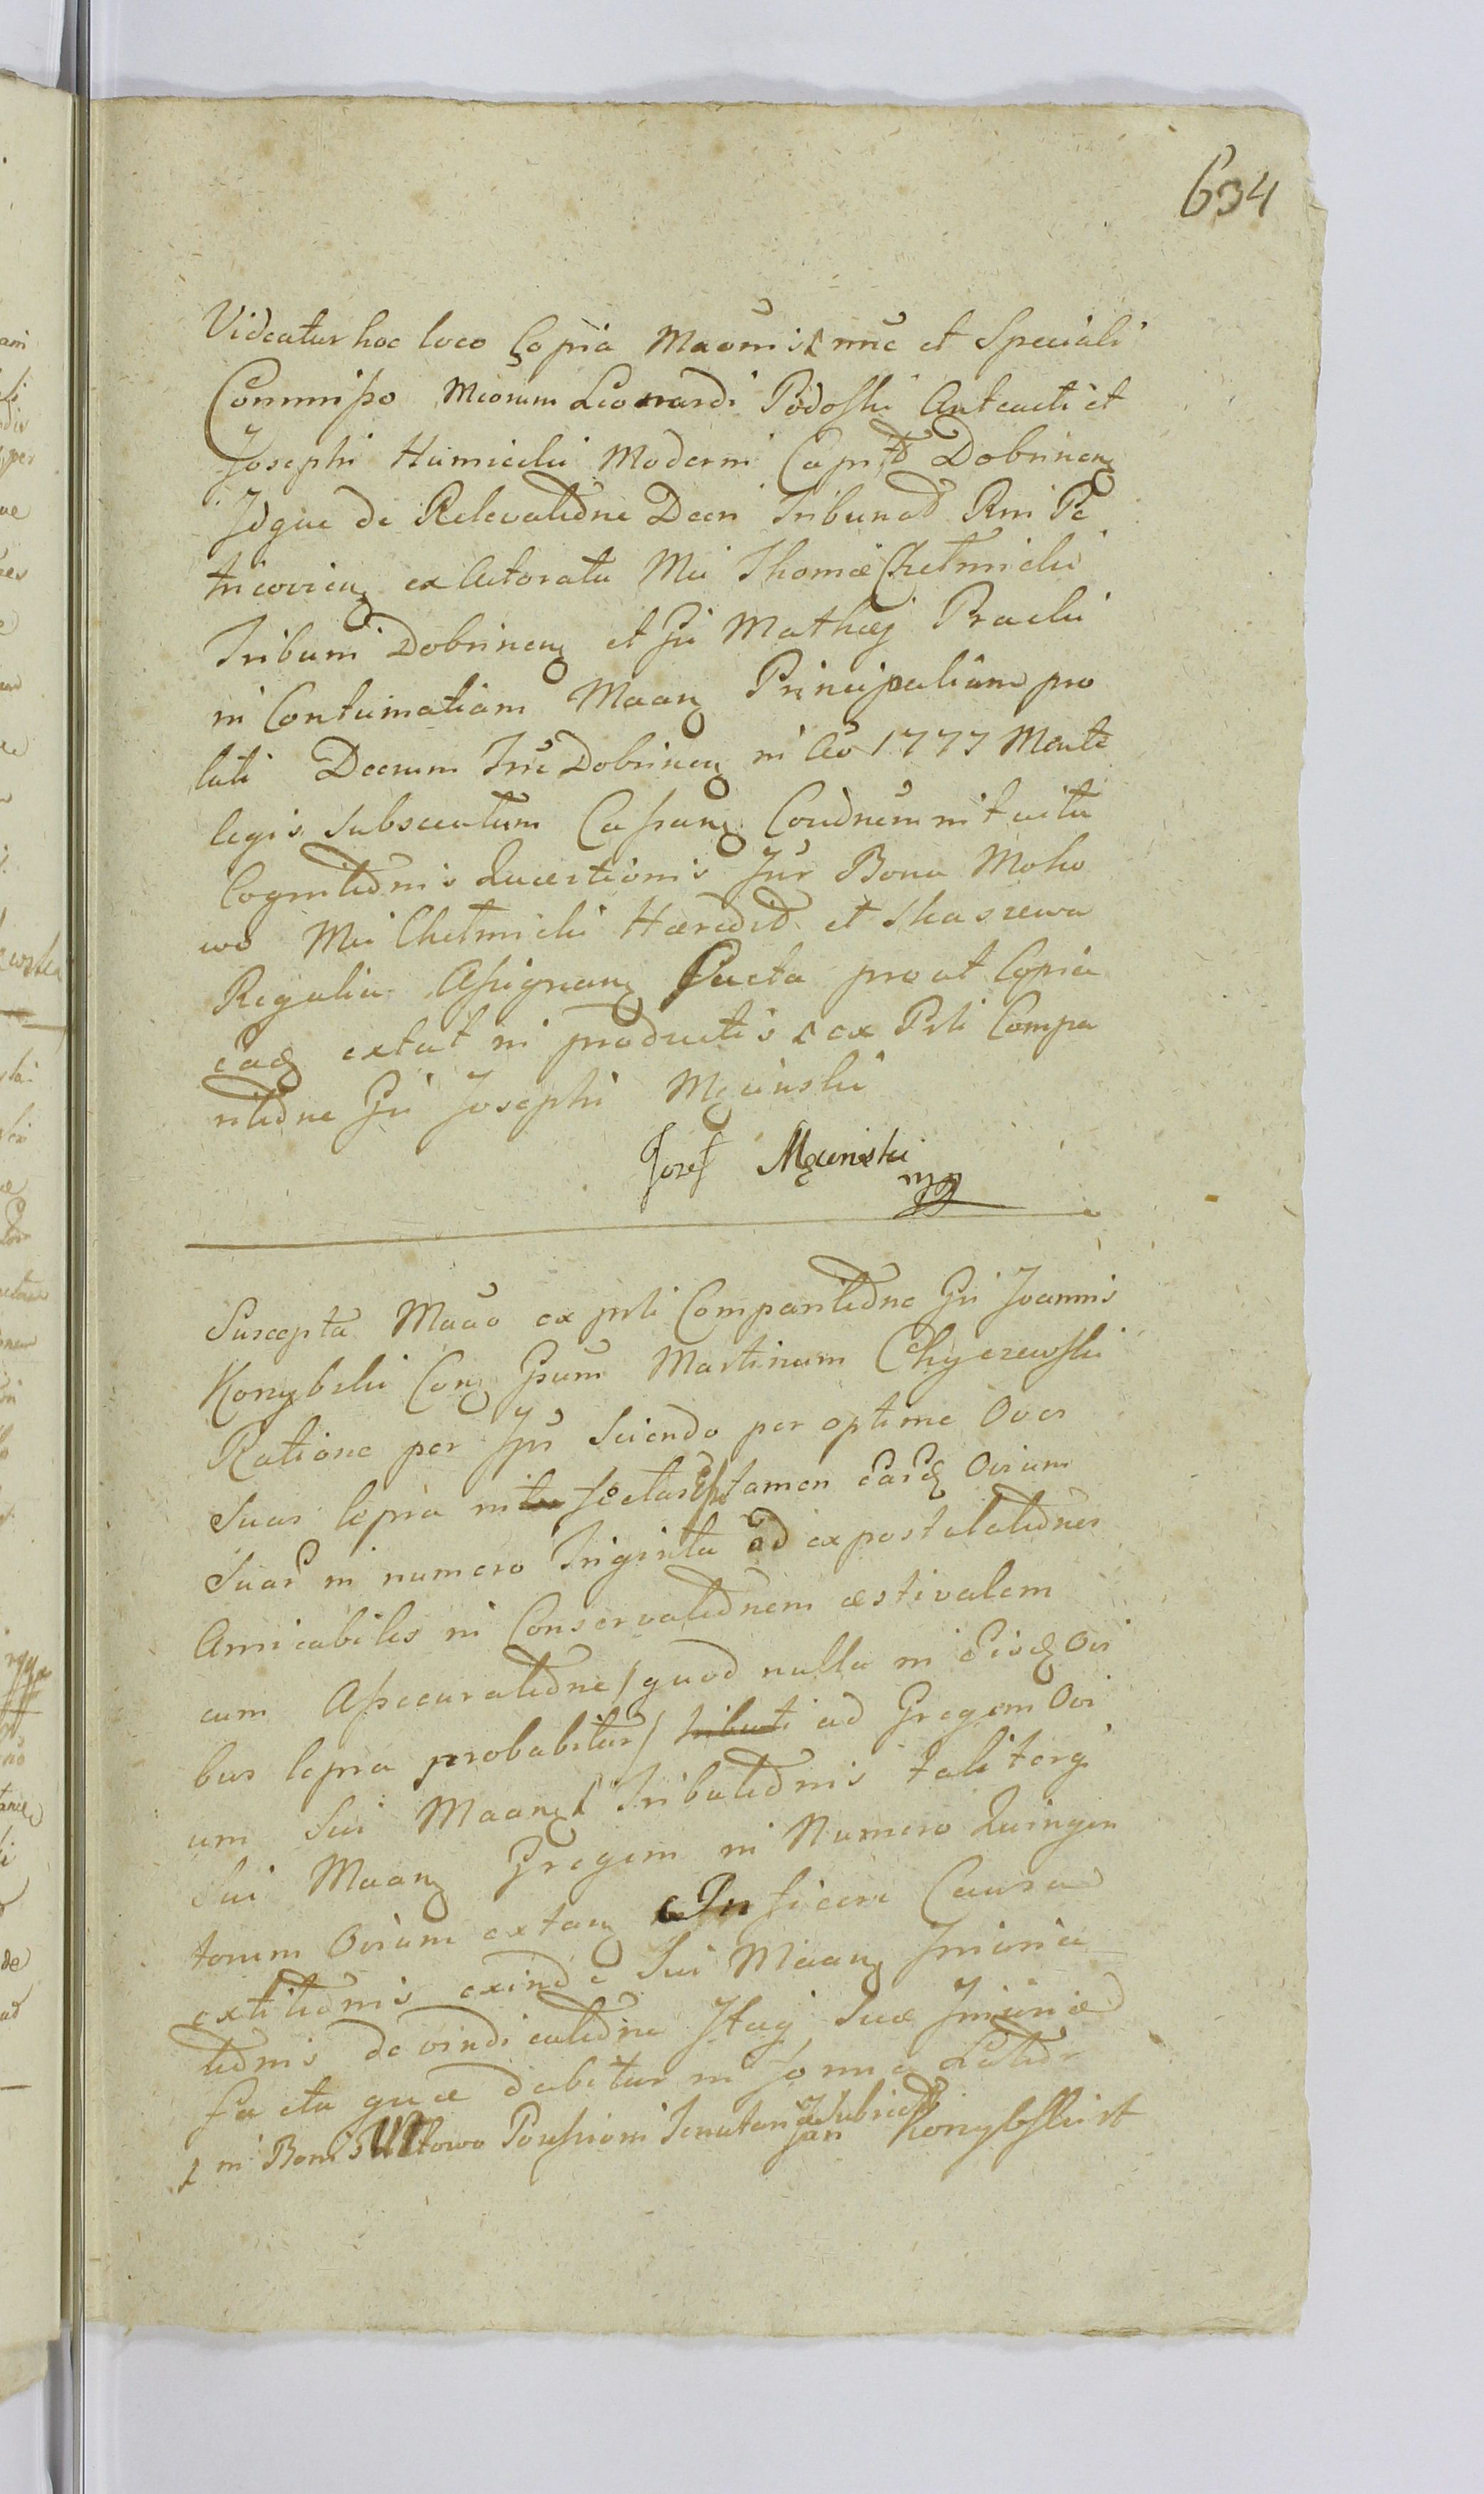 634
Videatur hoc loco Copia Maōnis nnē et Speciali
Commisso Mcorum Leonardi Podoski Anteacti et
Josephi Humiecki Moderni Capitt Dobrinen
Idque de Relevatione Decri Tribunal Rni Pe
tricovien ex Actoratu Mci Thomæ Chełmicki
Tribuni Dobrinen et Gsi Mathæj Pracki
in Contumatiam Maan Principalium pro
lati Decrum Trrē Dobrinen in Aō 1777 Mente
legis subsecutum Cassan Condnem intuitu
Cognitionis Quæstionis Inr Bona Moko
wo Mci Chełmicki Hæredit et Skaszewa
Regalia Assignan Facta prout Copia
ead extat in productis ex Prli Compa
ritione Gsi Josephi Męcinski
Jozef Męcinski
mp
Suscepta Maāo ex prli Comparitione Gsi Joannis
Konybski Con Gsum Martinum Chyczewski
Ratione per Ipsū Sciendo per optime Oves
Suas lepra infectas tamen easd Ovium
Suar in numero Triginta ad expostulationes
Amicabiles in Conservationem æstivalem
cum Assecuratione / quod nulla in Eisd Ovi
bus lepra probabitur / tributi ad Gregem Ovi
um Sui Maan Tributionis taliterq
Sui Maan Gregem in Numero Quingen
torum Ovium extan Inficere Causa
extitionis exinde Sui Maan Iniuria
tionis de vindicatione Itaq Suæ Iniuriæ
facta quæ dabitur in forma Latior
in Bonis Witowo Possessioni Tenutariæ Subiectis
Jan Konybski